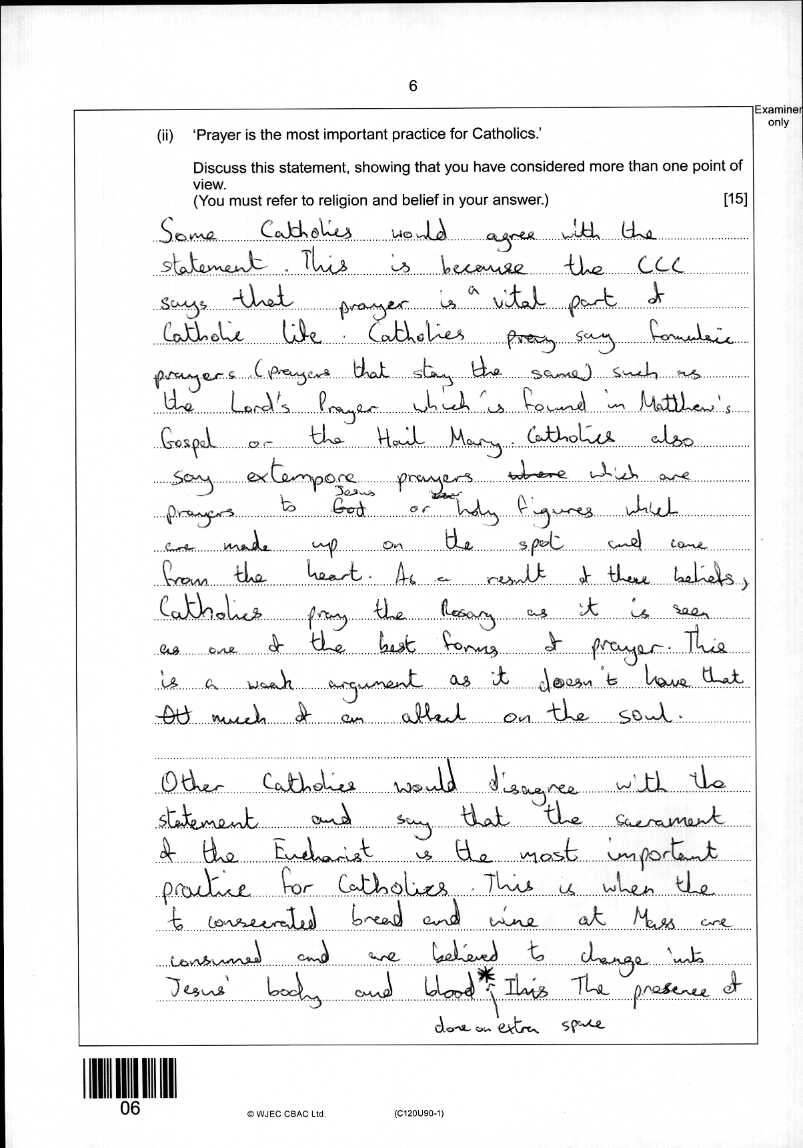 6
Examiner
only
(ii) 'Prayer is the most important practice for Catholics.'
Discuss this statement, showing that you have considered more than one point of
view.
(You must refer to religion and belief in your answer.) [15]
Some Catholics would agree with the
statement. This is because the CCC
says that prayer is a vital part of
Catholic life. Catholics pray say formulaic
prayers (prayers that stay the same) such as
the Lord's Prayer which is found in Matthew's
Gospel or the Hail Mary. Catholics also
say extempore prayers where which are
Jesus
prayers to God or holy figures which
are made up on the spot and come
from the heart. As a result of these beliefs,
Catholics pray the Rosary as it is seen
as one of the best forms of prayer. This
is a weak argument as it doesn't have that
much of an affect on the soul.
Other Catholics would disagree with the
statement and say that the sacrament
of the Eucharist is the most important
practice for Catholics. This is when the
to consecrated bread and wine at Mass are
consumed and are believed to change into
Jesus' body and blood*. This The presence of
done on extra space
06
© WJEC CBAC Ltd. (C120U90-1)